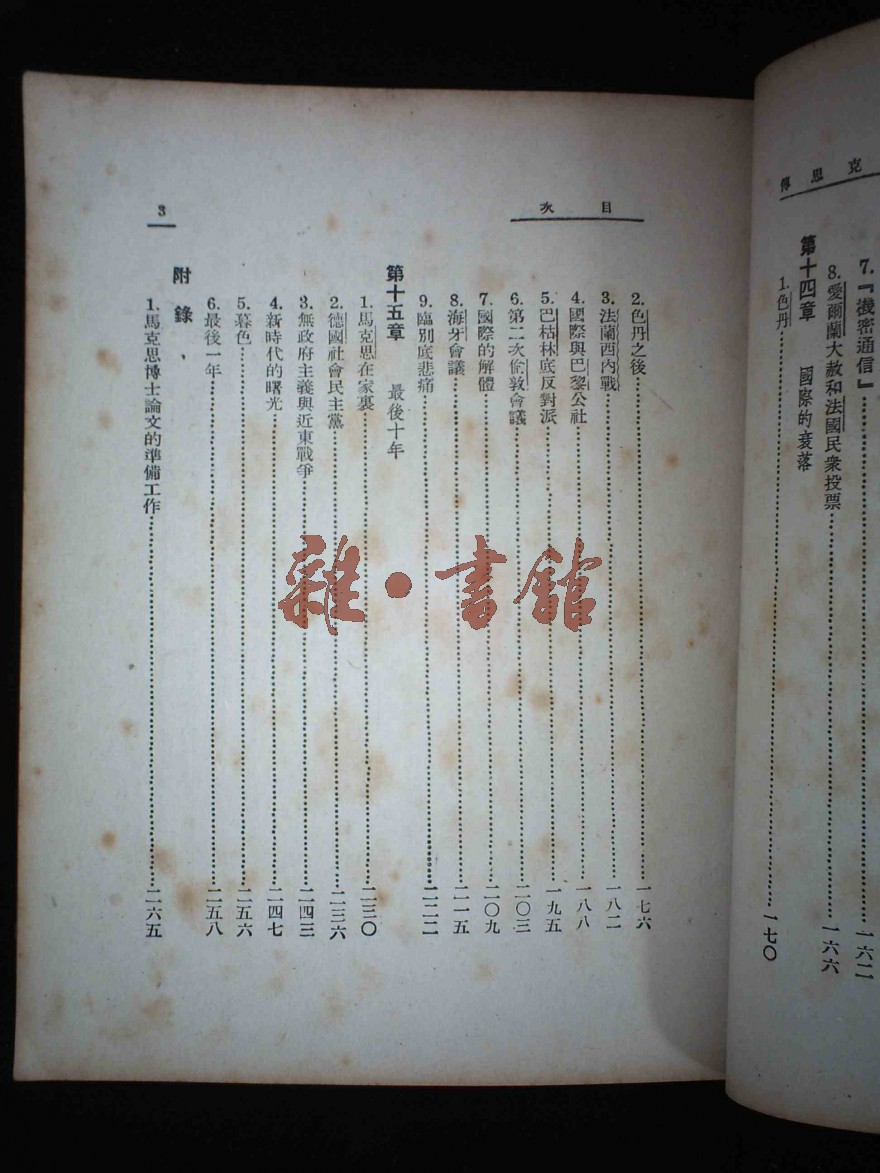 克思傳
7.『機密通信』……一六二
8.愛爾蘭大赦和法國民衆投票……一六六
第十四章 國際的衰落
1.色丹……一七〇
目次
2.色丹之後……一七六
3.法蘭西內戰……一八二
4.國際與巴黎公社……一八八
5.巴枯林底反對派……一九五
6.第二次倫敦會議……二〇三
7.國際的解體……二〇九
8.海牙會議……二一五
9.臨別底悲痛……二二二
第十五章 最後十年
1.馬克思在家裏……二三〇
2.德國社會民主黨……二三六
3.無政府主義與近東戰爭……二四三
4.新時代的曙光……二四七
5.暮色……二五六
6.最後一年……二五八
附錄、
1.馬克思博士論文的準備工作……二六五
3
雜·書館